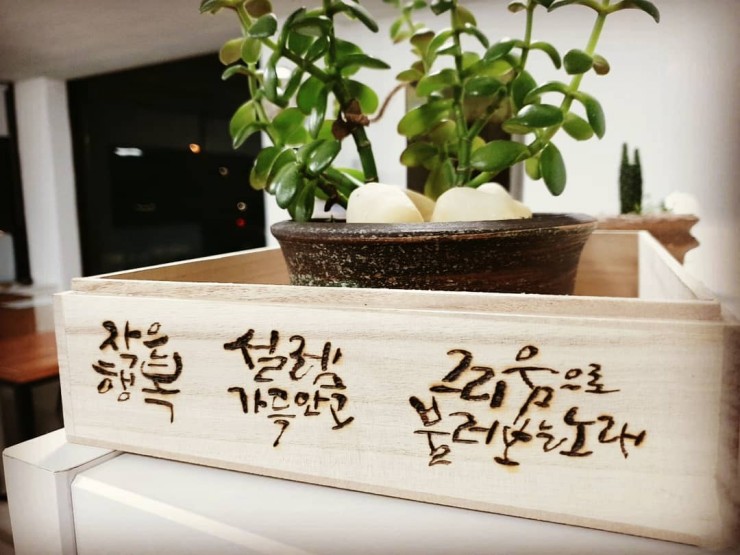 작은
행복
설레임
가득안고
그리움으로
불러보는노래